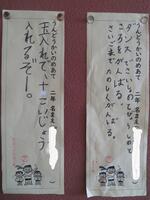 うんどうかいのめあて 二年 名まえ
ダンス さいしょの
ころをがんばる。
さいごまでたのしくがんばる。
うんどうかいのめあて 二年 名まえ
玉入れで、二こいじょう
入れるぞー。